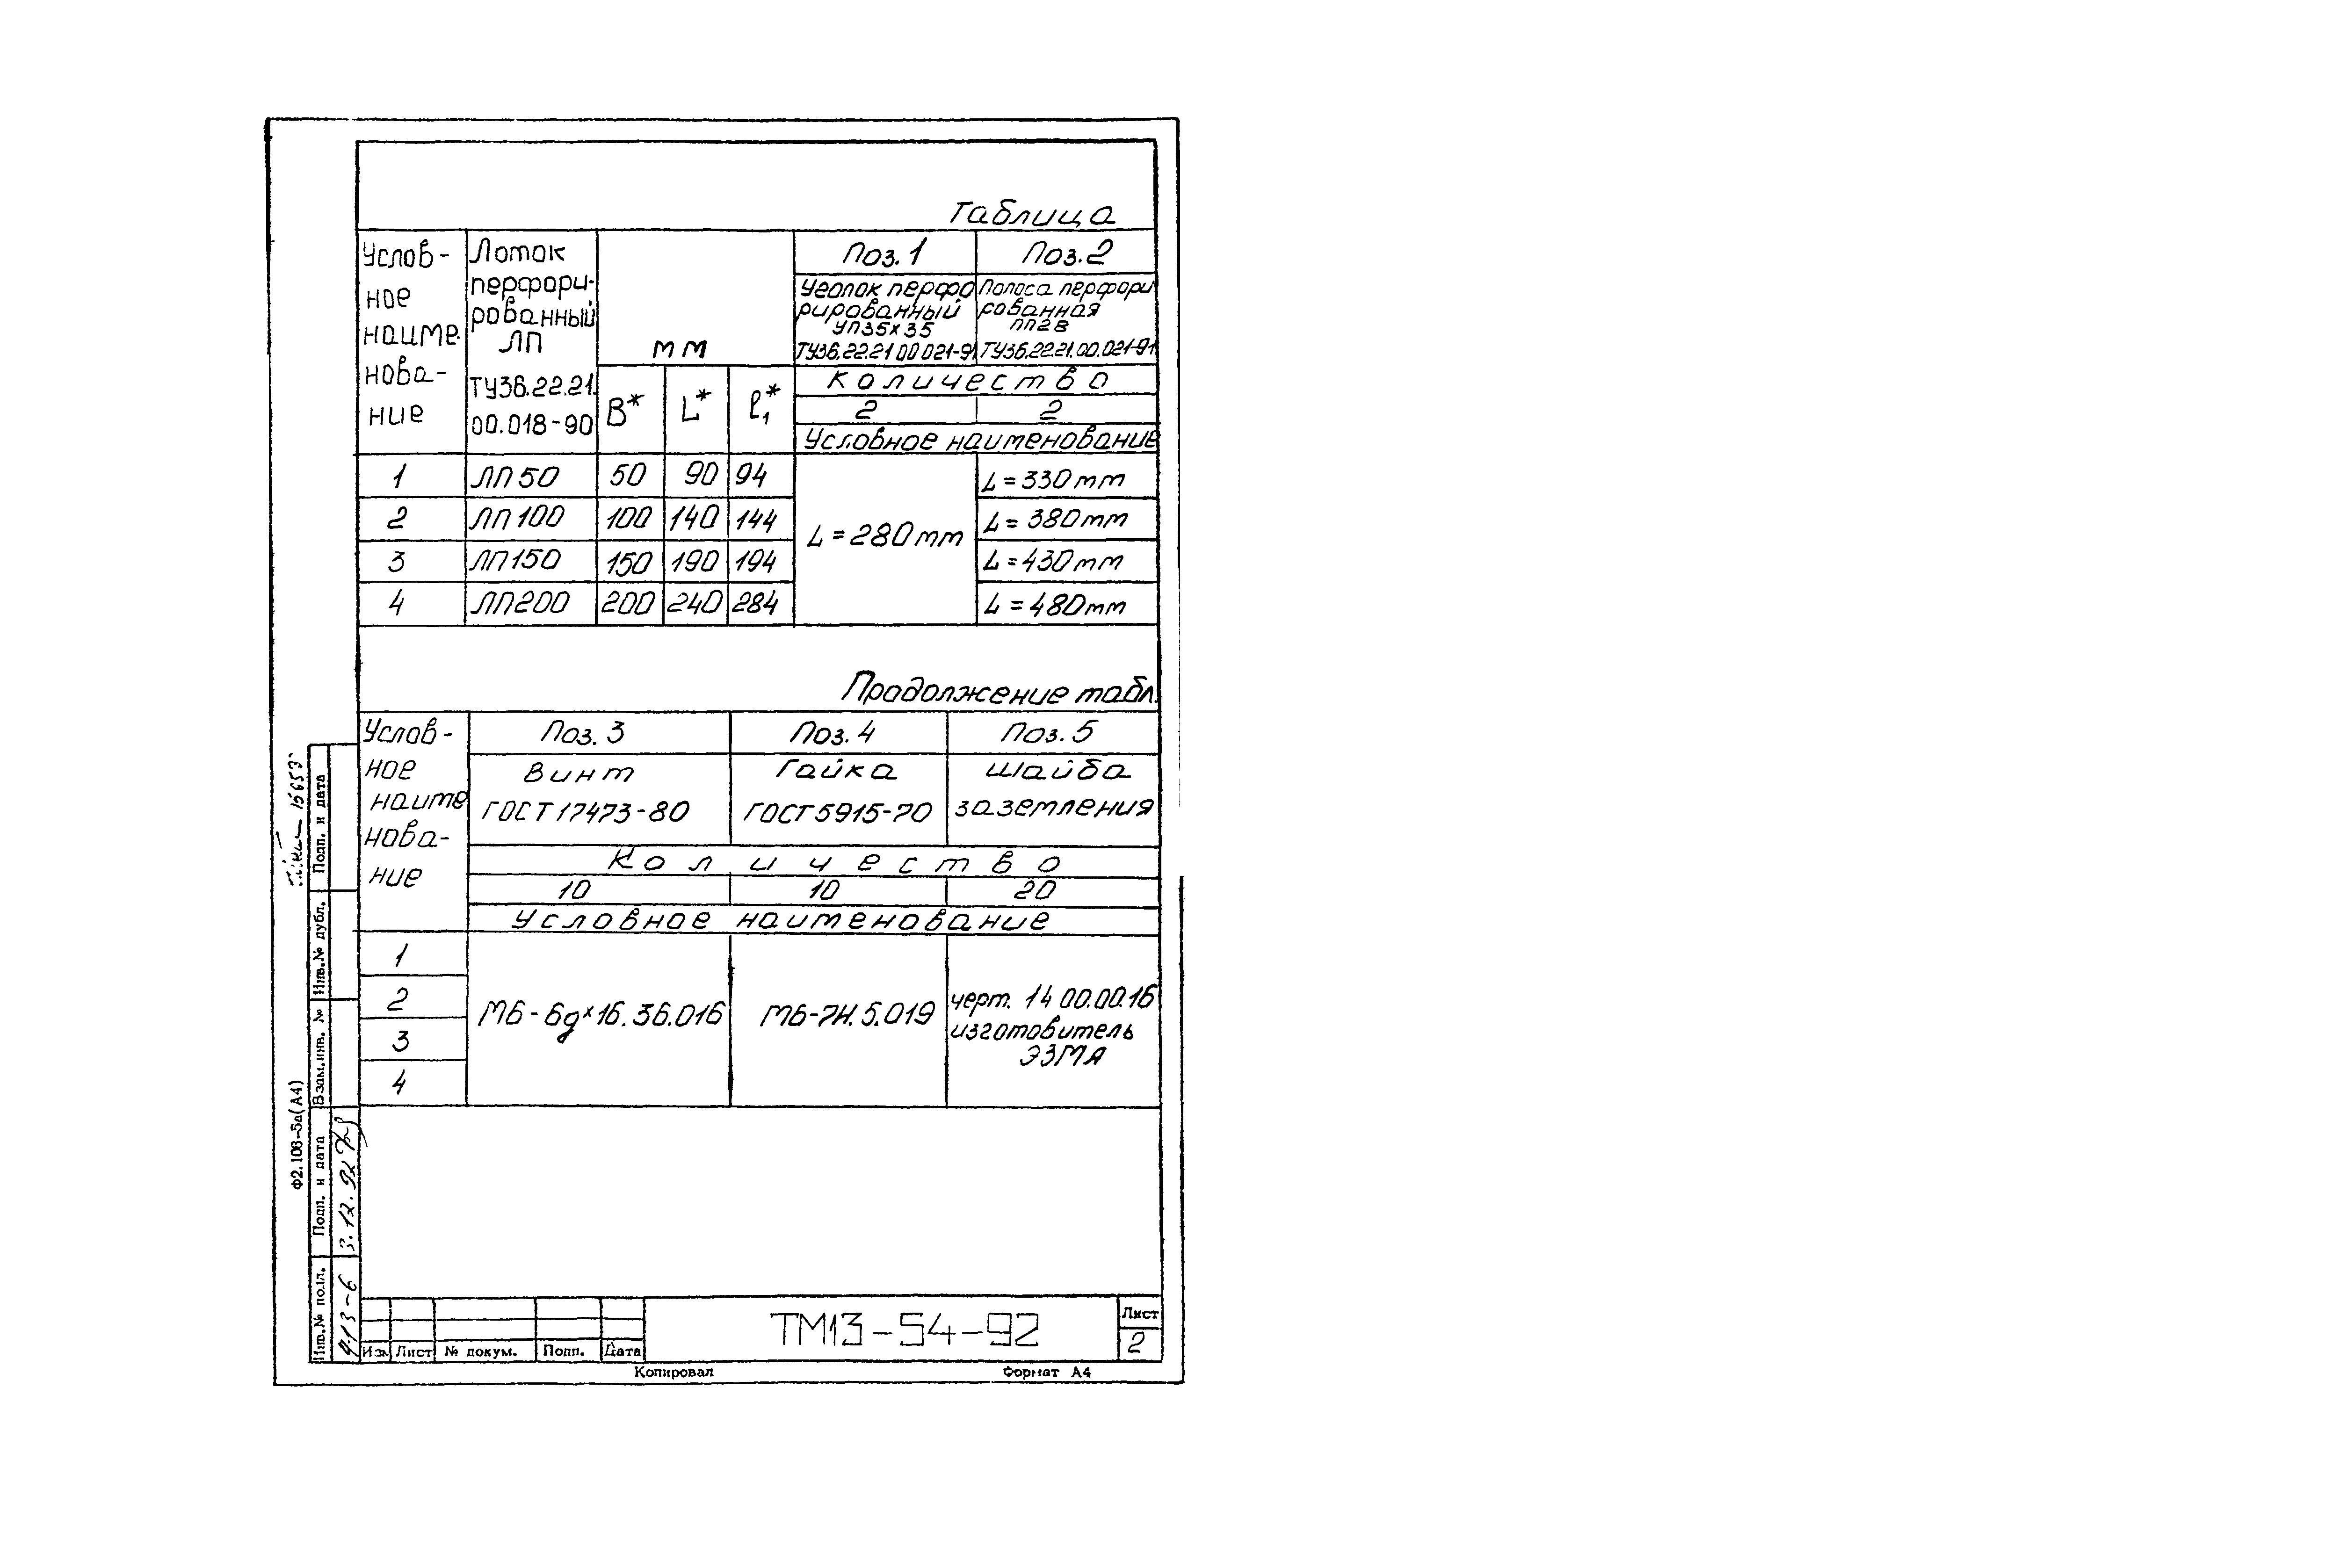 Таблица
Услов-
ное
наиме-
нова-
ние
Лоток
перфори-
рованный
ЛП
ТУ36.22.21.
00.018-90
мм
B* L* ℓ₁*
Поз.1 Поз.2
Уголок перфо
рированный
УП35х35
ТУ36.22.21 00 021-91
Полоса перфори
рованная
ПП28
ТУ36.22.21.00.021-91
Количество
2 2
Условное наименование
1 ЛП50 50 90 94 L=330мм
2 ЛП100 100 140 144 L=380мм
L=280мм
3 ЛП150 150 190 194 L=430мм
4 ЛП200 200 240 284 L=480мм
Продолжение табл.
Услов-
ное
наиме
нова-
ние
Поз.3 Поз.4 Поз.5
Винт
ГОСТ17473-80
Гайка
ГОСТ5915-70
Шайба
заземления
Количество
10 10 20
Условное наименование
1
2
3
4
М6-6gх16.36.016
М6-7Н.5.019
черт. 14 00.00.16
изготовитель
ЭЗМА
Подп. и дата
Инв.№ дубл.
Взам.инв. №
Подп. и дата
3.12.92
Инв.№ подл.
413-6
Ф2.106-5а(А4)
Изм Лист № докум. Подп. Дата
ТМ13-54-92
Лист
2
Копировал Формат А4